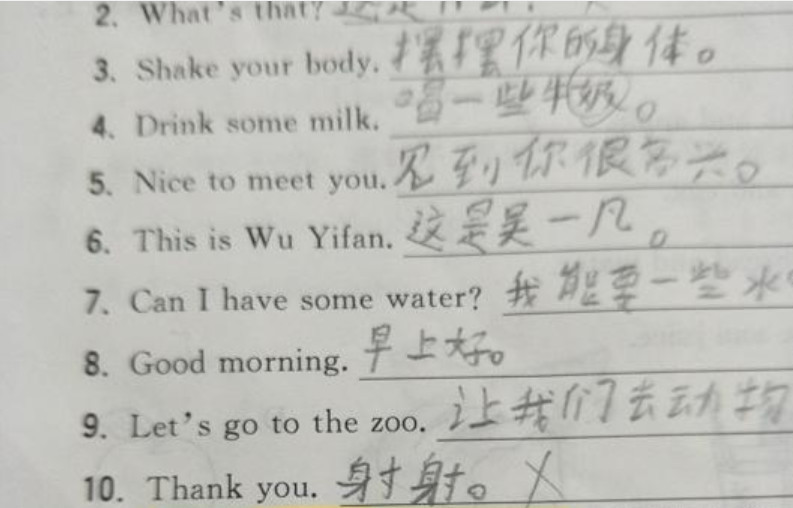 2. What's that? 这是什么？ X
3. Shake your body. 摆摆你的身体。
4. Drink some milk. 喝一些牛奶。
5. Nice to meet you. 见到你很高兴。
6. This is Wu Yifan. 这是吴一凡。
7. Can I have some water? 我能要一些水
8. Good morning. 早上好。
9. Let's go to the zoo. 让我们去动物
10. Thank you. 射射。 X